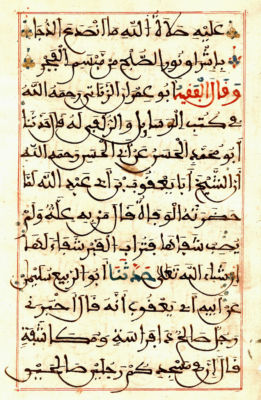 عليه صلاة الله ما انصدع الدجا
بإشراق نور الصبح من مبسم الفجر
وقال الفقيه أبو عمران الزناتي رحمه الله
في كتب الوسايل والزلفى له قال حدثنا
أبو محمد الحسن عن أبي الحسن رحمه الله
أن الشيخ أبا يعقوب بن أبي عبد الله لما
حضرته الوفاة قال من به علة ولم
يصب شفاها فتراب القبر شفاء لها
إن شاء الله تعلى حدثنا أبو الربيع سليمن
عن أبيه أبي يعقوب أنه قال أخبرني
رجل صالح ذو فراسة ومكاشفة
قال إن في مسجدكم رجلين صالحين